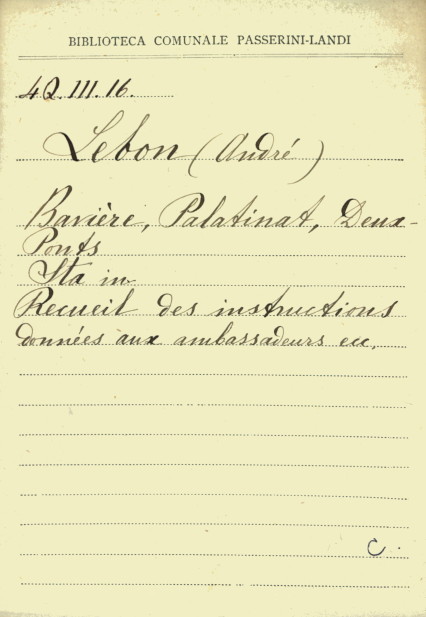 BIBLIOTECA COMUNALE PASSERINI-LANDI
4Q.III.16.
Lebon (André)
Bavière, Palatinat, Deux-
Ponts
Sta in
Recueil des instructions
données aux ambassadeurs ecc.
C.